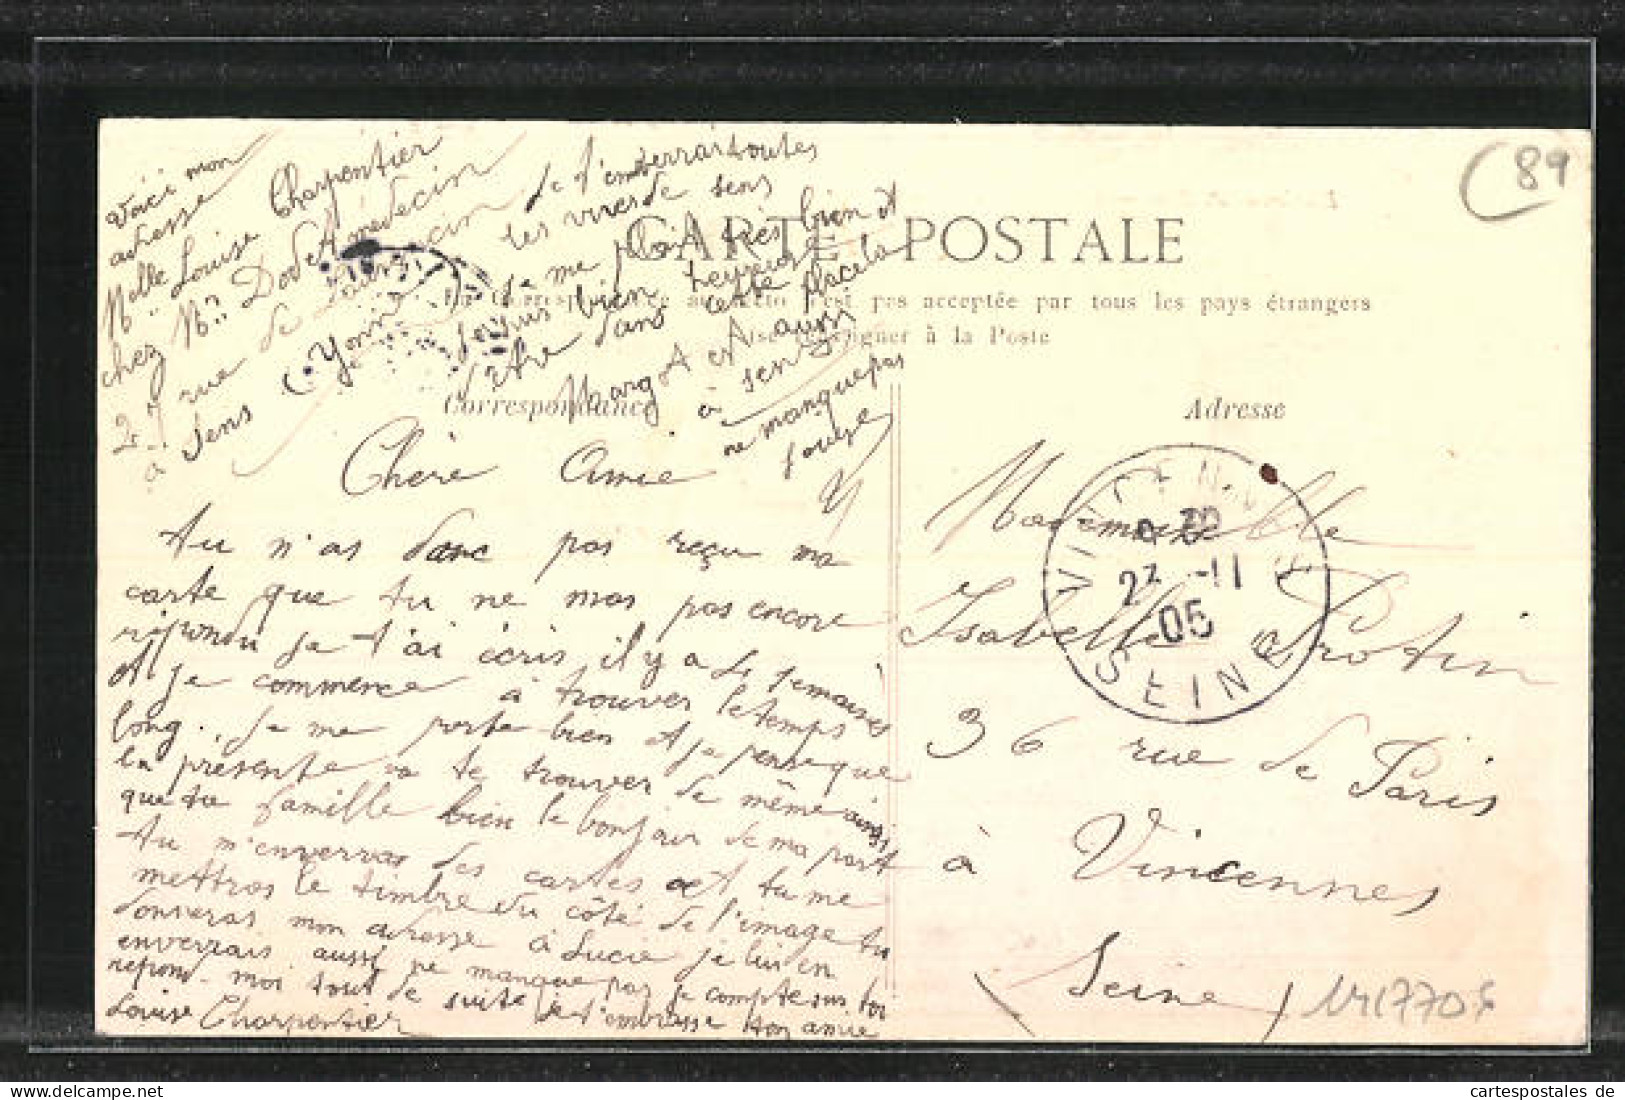 Voici mon
adresse
Melle Louise Charpentier
chez Mr Dodet médecin
27 rue de
à Sens (Yonne)
Je t'enverrai toutes
les vues de sens
Je me plait très bien et
je suis bien heureuse
d'être dans cette place la
Margot et aussi
à sens
ne manque pas
CARTE POSTALE
La Correspondance au recto n'est pas acceptée par tous les pays étrangers
Se renseigner à la Poste
Correspondance
Adresse
Chère Amie
Tu n'as donc pas reçu ma
carte que tu ne mas pas encore
répondu Je t'ai écris il y a de semaines
et je commence à trouver le temps
long.. Je me porte bien et je pense que
la présente va te trouver de même ainsi
que ta famille bien le bonjour de ma part
tu m'enverras des cartes et tu me
mettras le timbre du côté de l'image tu
donneras mon adresse à Lucie je lui en
enverrais aussi ne manque pas je compte sur toi
répond-moi tout de suite Je t'embrasse ton amie
Louise Charpentier
Mademoiselle
Isabelle Protin
36 rue de Paris
à Vincennes
(Seine)
VINCENNES
23 -11
05
SEINE
89
cartespostales.de